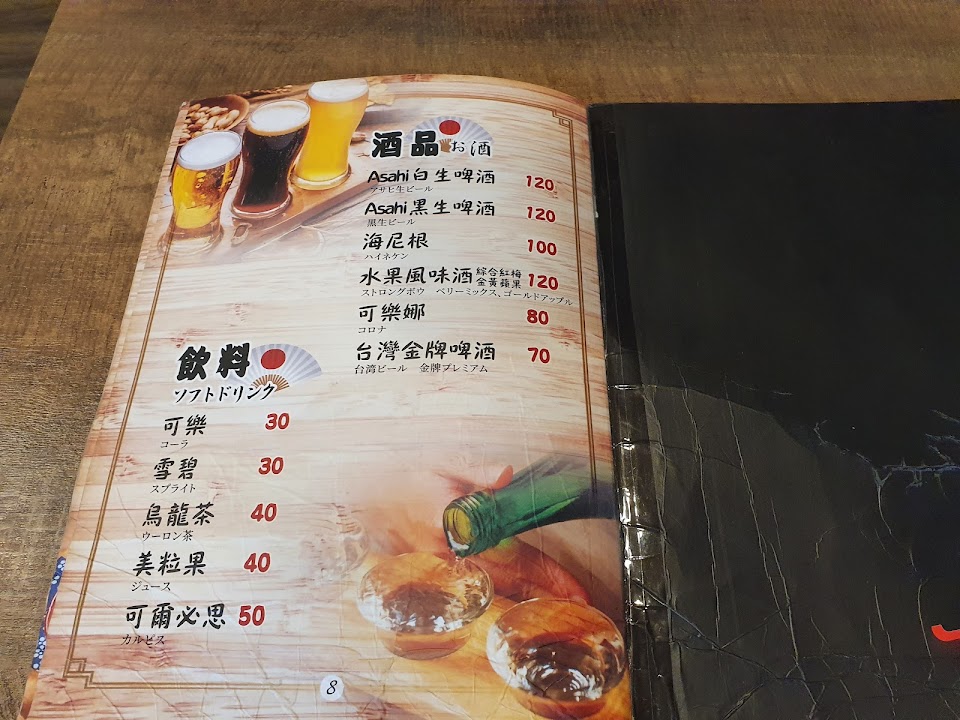 酒品 お酒
Asahi白生啤酒 120
アサヒ生ビール
Asahi黑生啤酒 120
黒生ビール
海尼根 100
ハイネケン
水果風味酒 綜合紅梅 金黃蘋果 120
ストロングボウ ベリーミックス、ゴールドアップル
可樂娜 80
コロナ
台灣金牌啤酒 70
台湾ビール 金牌プレミアム
飲料
ソフトドリンク
可樂 30
コーラ
雪碧 30
スプライト
烏龍茶 40
ウーロン茶
美粒果 40
ジュース
可爾必思 50
カルピス
8